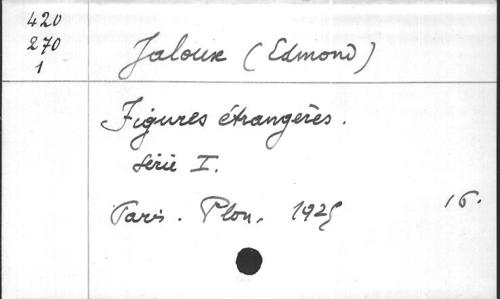 420
270
1
Jaloux (Edmond)
Figures étrangères.
Série I.
Paris. Plon. 1925 16.